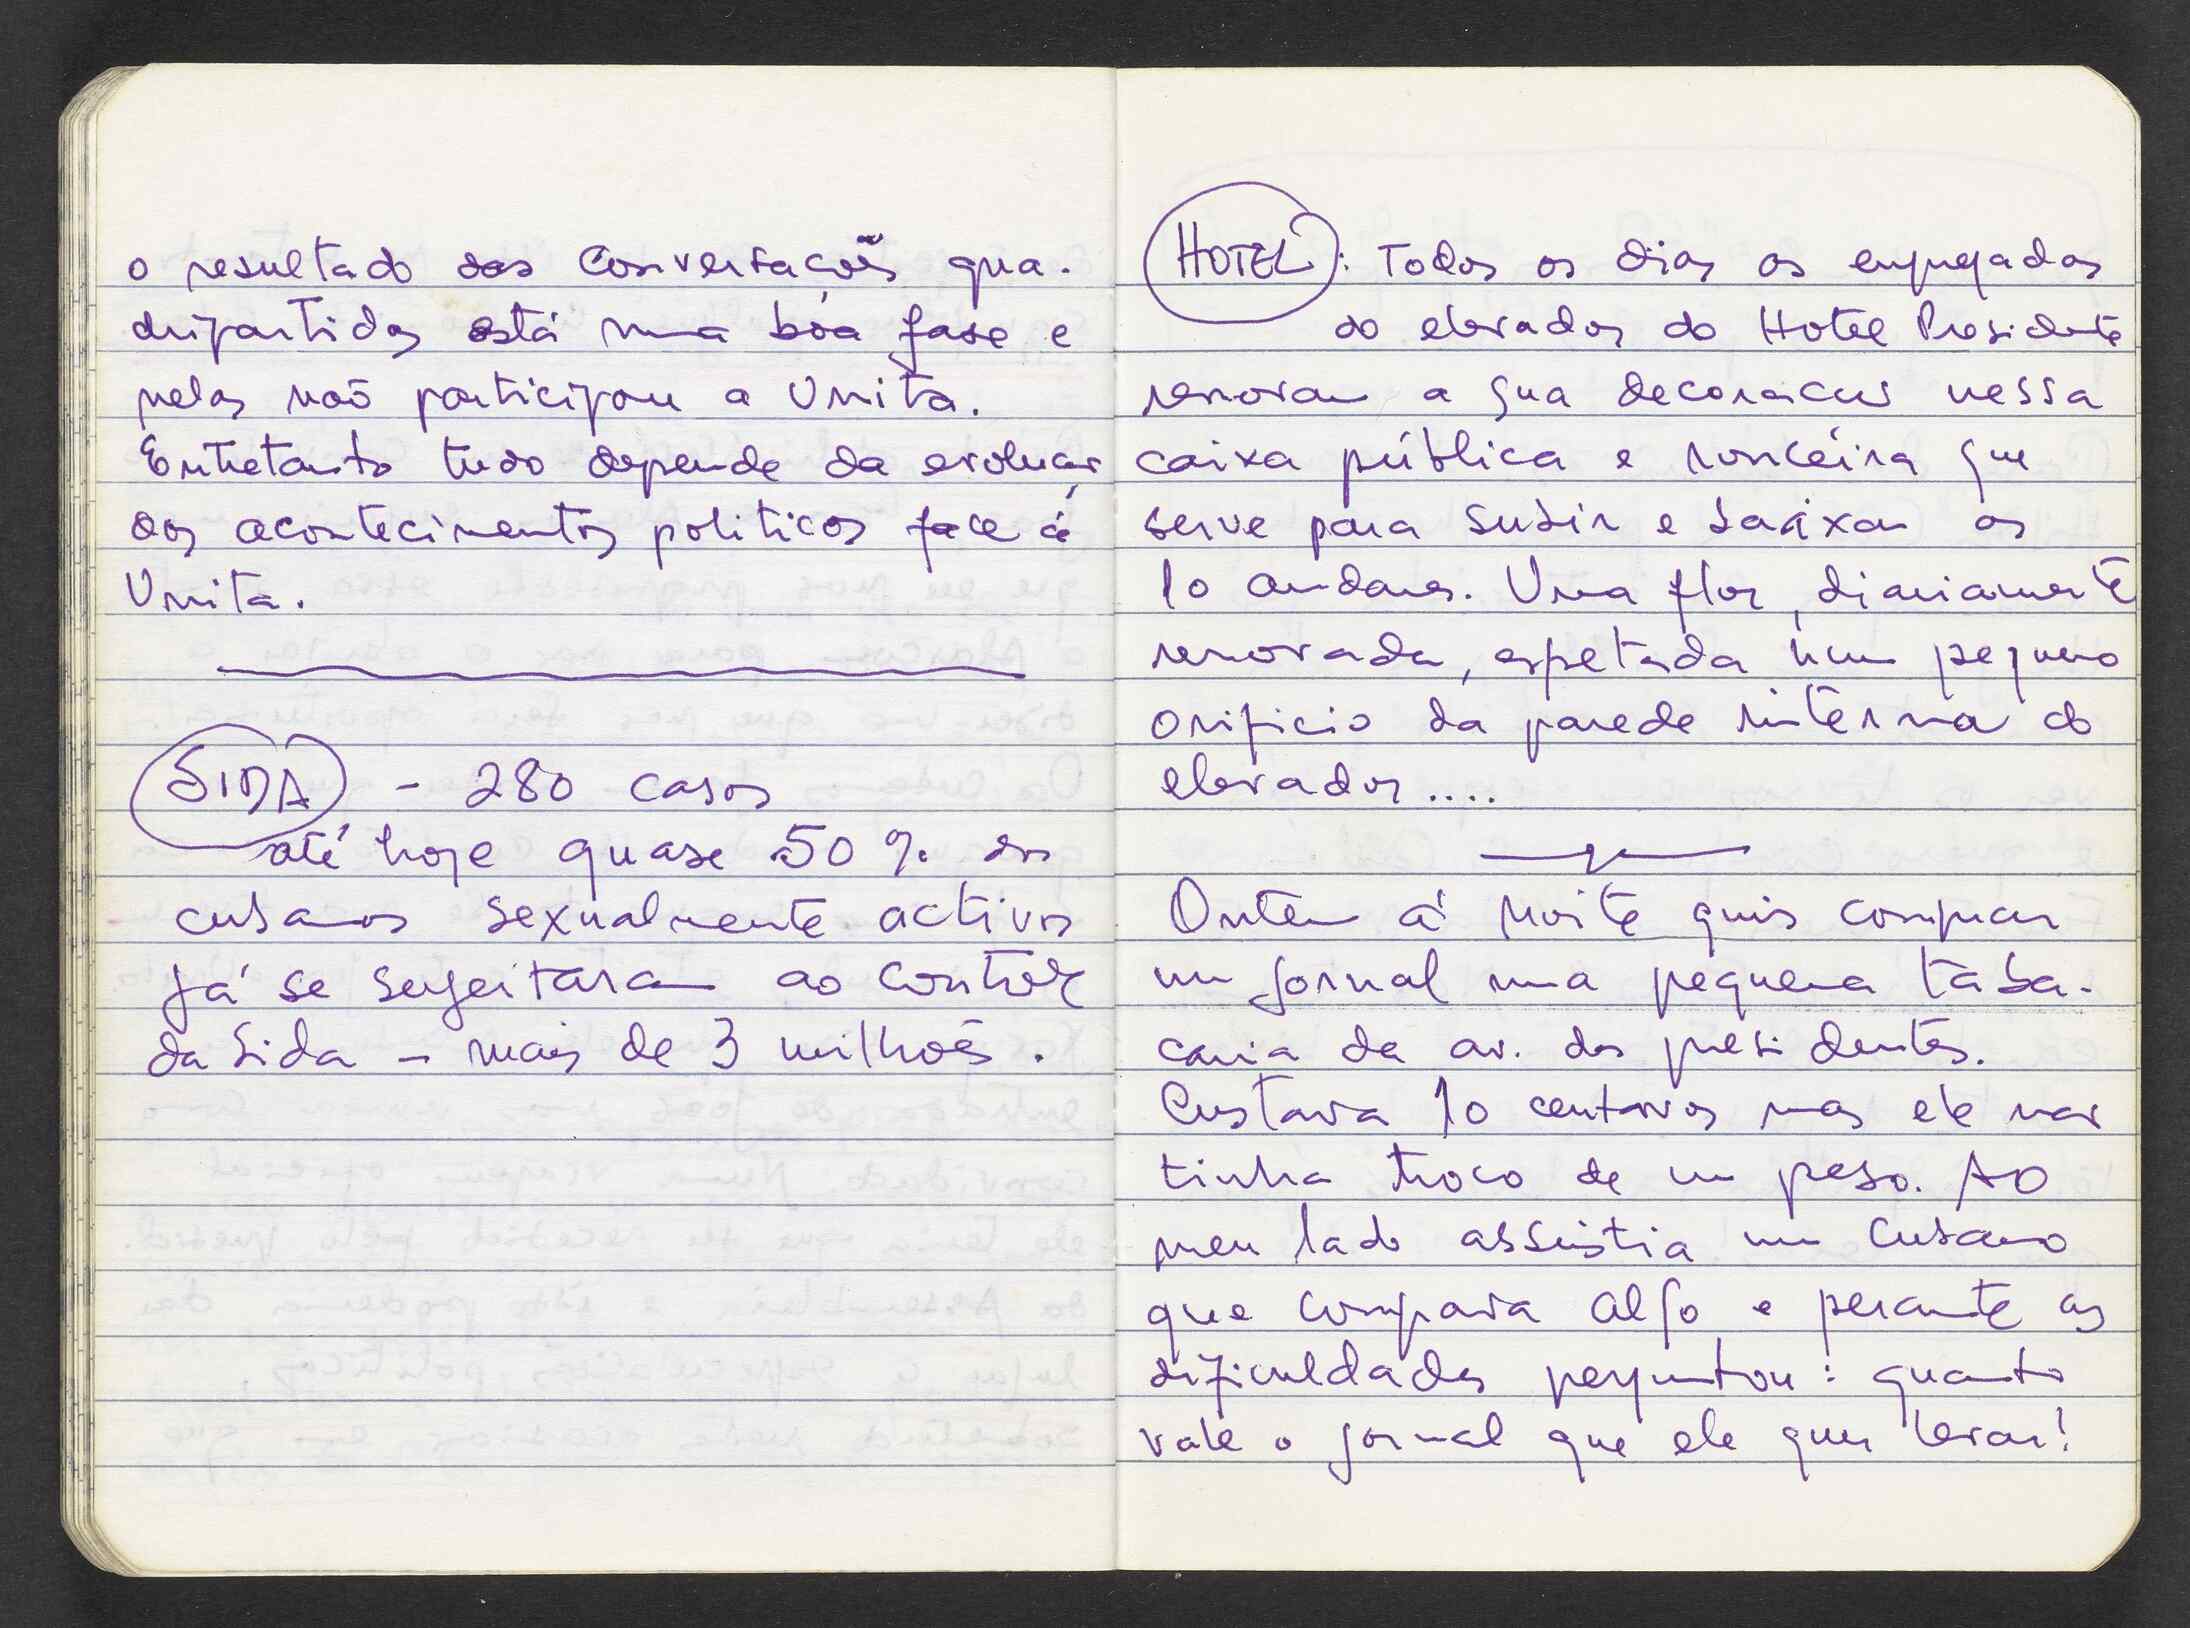 o resultado das Conversações qua-
dripartidas está numa bôa fase e
nelas não participou a Unita.
Entretanto tudo depende da evolução
dos acontecimentos politicos face à
Unita.
SIDA - 280 casos
até hoje quase 50% dos
cubanos sexualmente activos
já se sujeitaram ao controle
da Sida - mais de 3 milhões.
HOTEL: Todos os dias os empregados
do elevador do Hotel Presidente
renovam a sua decoração nessa
caixa pública e ronceira que
serve para subir e baixar os
10 andares. Uma flor, diariamente
renovada, espetada num pequeno
orificio da parede interna do
elevador....
Ontem à noite quis comprar
um jornal numa pequena taba-
caria da av. dos presidentes.
Custava 10 centavos mas ele não
tinha troco de um peso. AO
meu lado assistia um Cubano
que comprava algo e perante as
dificuldades perguntou: quanto
vale o jornal que ele quer levar?